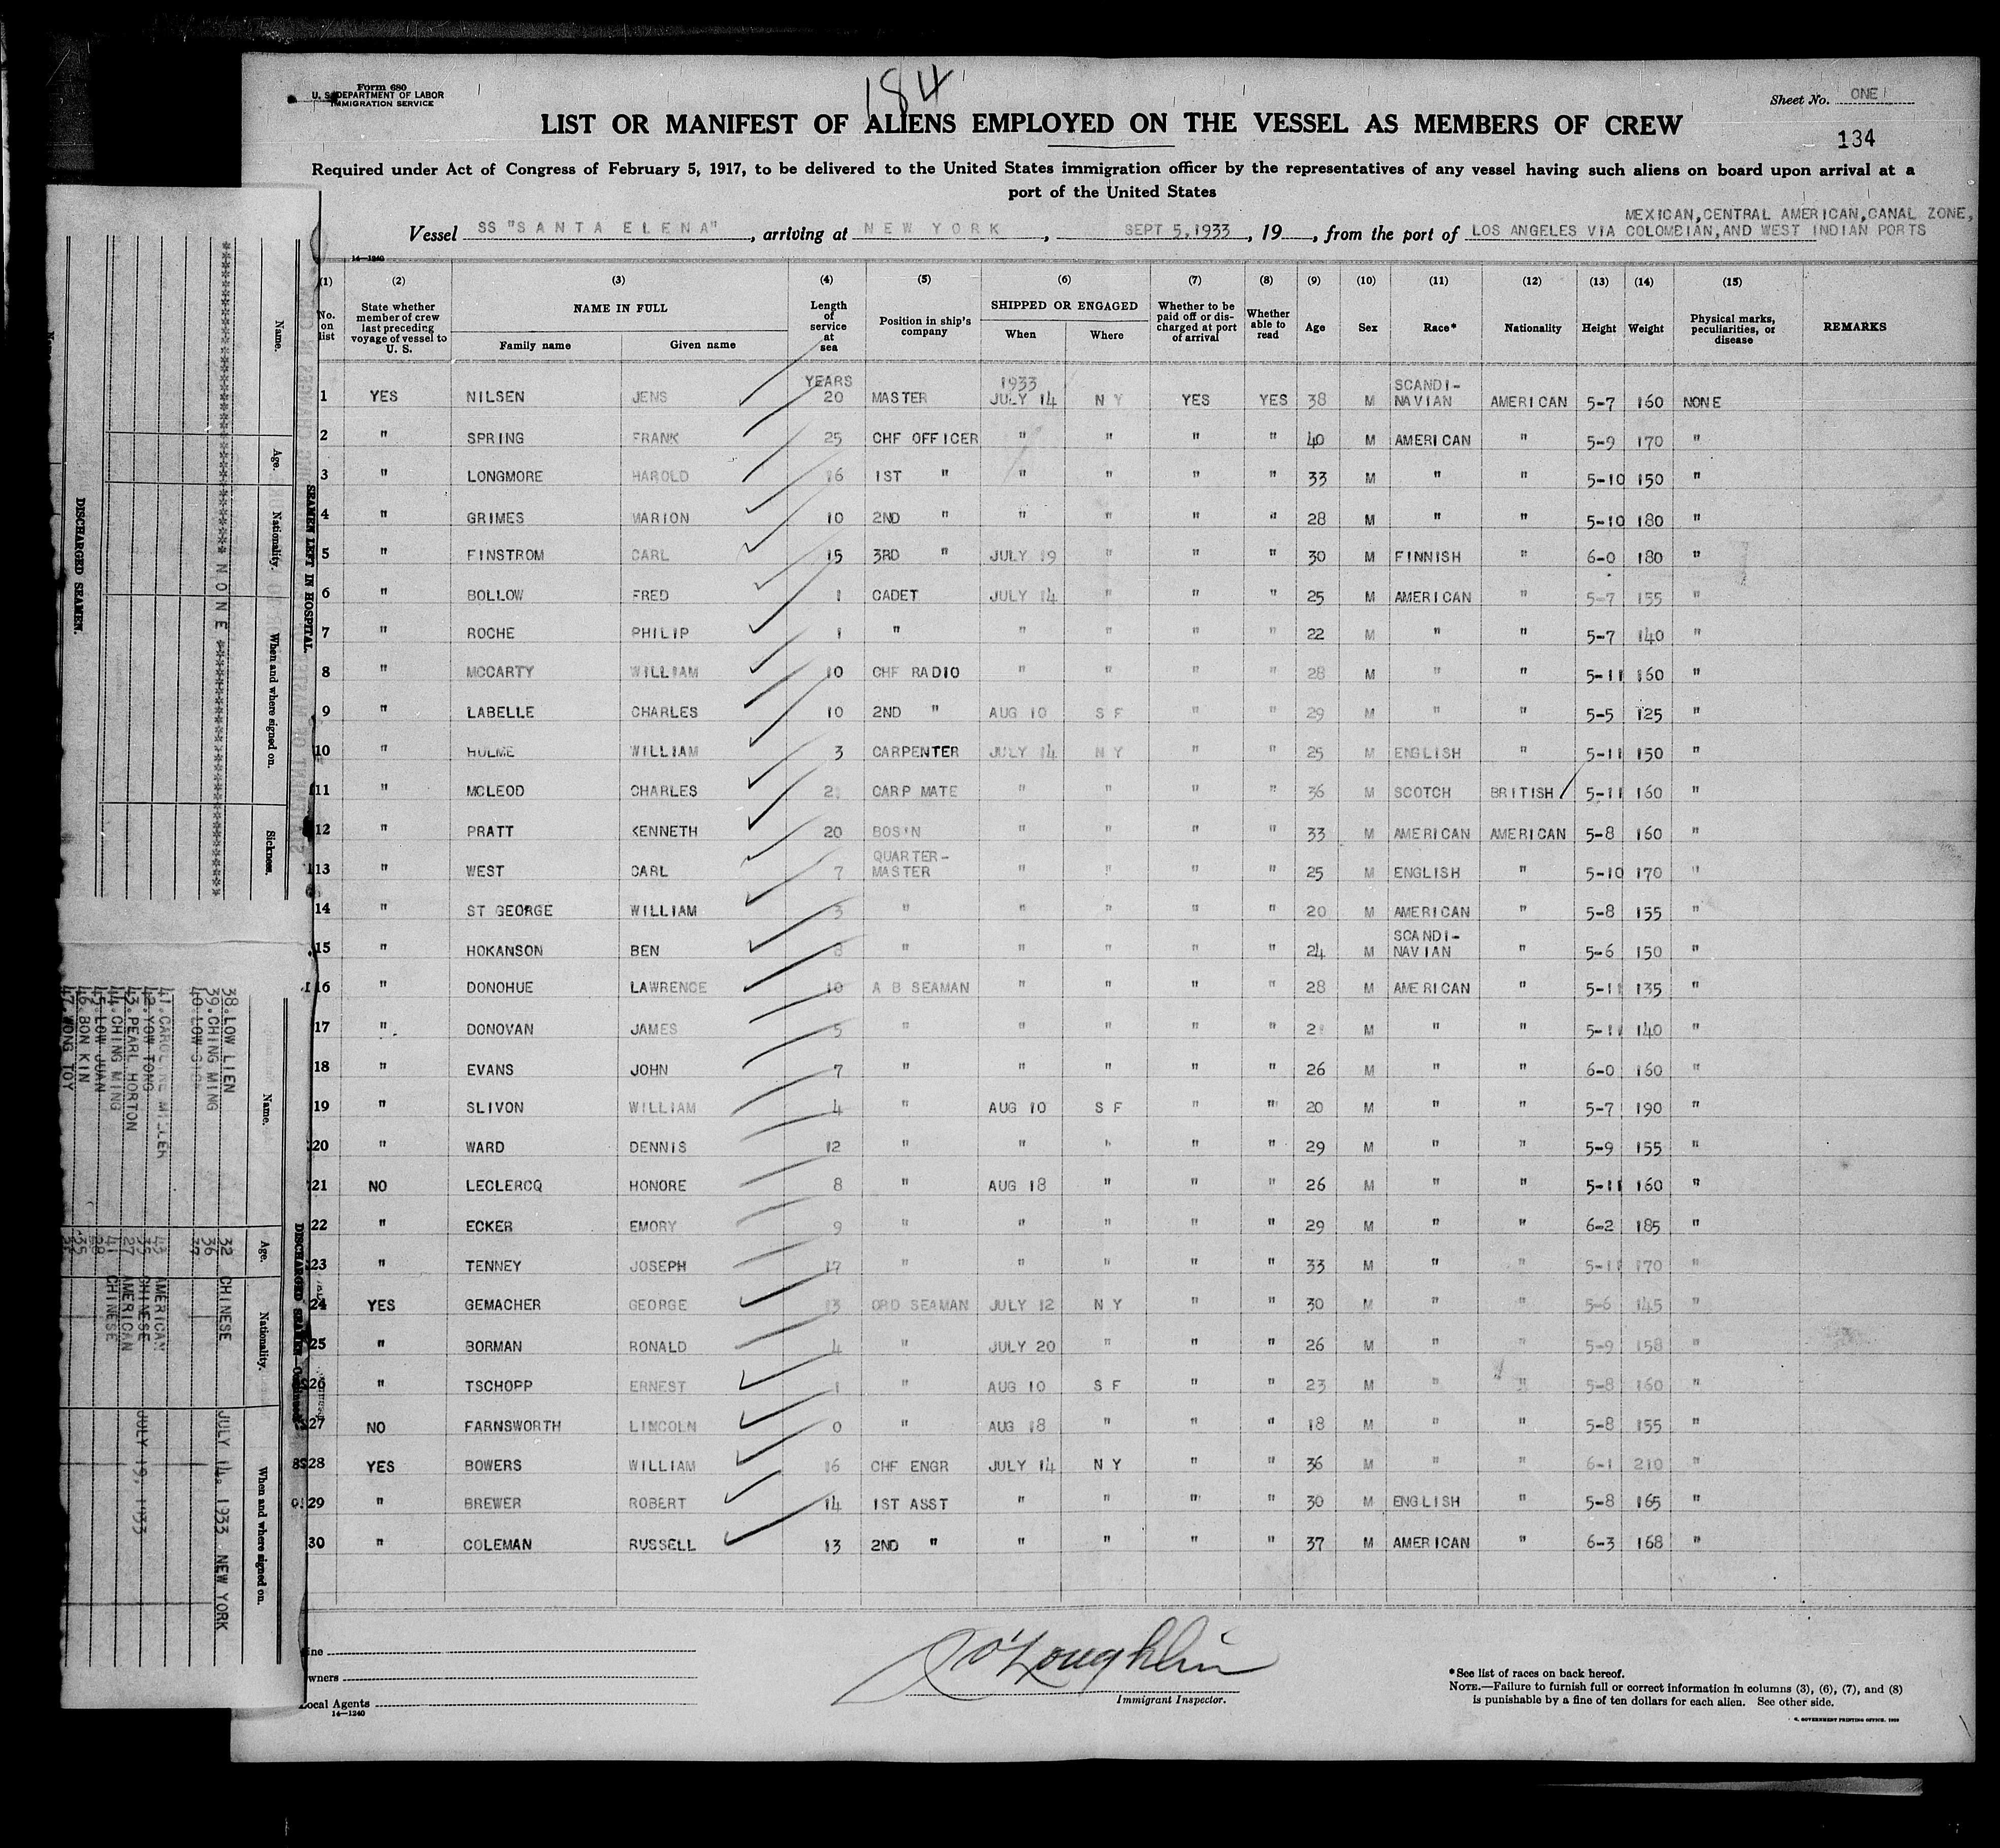 Form 680
U. S. DEPARTMENT OF LABOR
IMMIGRATION SERVICE
184
Sheet No. ONE
LIST OR MANIFEST OF ALIENS EMPLOYED ON THE VESSEL AS MEMBERS OF CREW
134
Required under Act of Congress of February 5, 1917, to be delivered to the United States immigration officer by the representatives of any vessel having such aliens on board upon arrival at a
port of the United States
MEXICAN,CENTRAL AMERICAN,CANAL ZONE,
Vessel SS "SANTA ELENA", arriving at NEW YORK, SEPT 5,1933, 19, from the port of LOS ANGELES VIA COLOMBIAN,AND WEST INDIAN PORTS
14—1240
(1) (2) (3) (4) (5) (6) (7) (8) (9) (10) (11) (12) (13) (14) (15)
No. on list State whether member of crew last preceding voyage of vessel to U. S. NAME IN FULL Family name Given name Length of service at sea Position in ship's company SHIPPED OR ENGAGED When Where Whether to be paid off or discharged at port of arrival Whether able to read Age Sex Race* Nationality Height Weight Physical marks, peculiarities, or disease REMARKS
YEARS 1933 SCANDI-
1 YES NILSEN JENS 20 MASTER JULY 14 N Y YES YES 38 M NAVIAN AMERICAN 5-7 160 NONE
2 " SPRING FRANK 25 CHF OFFICER " " " " 40 M AMERICAN " 5-9 170 "
3 " LONGMORE HAROLD 16 1ST " " " " " 33 M " " 5-10 150 "
4 " GRIMES MARION 10 2ND " " " " " 28 M " " 5-10 180 "
5 " FINSTROM CARL 15 3RD " JULY 19 " " " 30 M FINNISH " 6-0 180 "
6 " BOLLOW FRED 1 CADET JULY 14 " " " 25 M AMERICAN " 5-7 155 "
7 " ROCHE PHILIP 1 " " " " " 22 M " " 5-7 140 "
8 " MCCARTY WILLIAM 10 CHF RADIO " " " " 28 M " " 5-11 160 "
9 " LABELLE CHARLES 10 2ND " AUG 10 S F " " 29 M " " 5-5 125 "
10 " HULME WILLIAM 3 CARPENTER JULY 14 N Y " " 25 M ENGLISH " 5-11 150 "
11 " MCLEOD CHARLES CARP MATE " " " " 36 M SCOTCH BRITISH 5-11 160 "
12 " PRATT KENNETH 20 BOSIN " " " " 33 M AMERICAN AMERICAN 5-8 160 "
QUARTER-
13 " WEST CARL 7 MASTER " " " " 25 M ENGLISH " 5-10 170 "
14 " ST GEORGE WILLIAM 3 " " " " " 20 M AMERICAN " 5-8 155 "
SCANDI-
15 " HOKANSON BEN " " " " " 24 M NAVIAN " 5-6 150 "
16 " DONOHUE LAWRENCE 10 A B SEAMAN " " " " 28 M AMERICAN " 5-11 135 "
17 " DONOVAN JAMES 5 " " " " " M " " 5-11 140 "
18 " EVANS JOHN 7 " " " " " 26 M " " 6-0 160 "
19 " SLIVON WILLIAM 4 " AUG 10 S F " " 20 M " " 5-7 190 "
20 " WARD DENNIS 12 " " " " " 29 M " " 5-9 155 "
21 NO LECLERCQ HONORE 8 " AUG 18 " " " 26 M " " 5-11 160 "
22 " ECKER EMORY 9 " " " " " 29 M " " 6-2 185 "
23 " TENNEY JOSEPH 17 " " " " " 33 M " " 5-11 170 "
24 YES GEMACHER GEORGE 13 ORD SEAMAN JULY 12 N Y " " 30 M " " 5-6 145 "
25 " BORMAN RONALD 4 " JULY 20 " " " 26 M " " 5-9 158 "
26 " TSCHOPP ERNEST 1 " AUG 10 S F " " 23 M " " 5-8 160 "
27 NO FARNSWORTH LINCOLN 0 " AUG 18 " " " 18 M " " 5-8 155 "
28 YES BOWERS WILLIAM 16 CHF ENGR JULY 14 N Y " " 36 M " " 6-1 210 "
29 " BREWER ROBERT 14 1ST ASST " " " " 30 M ENGLISH " 5-8 165 "
30 " COLEMAN RUSSELL 13 2ND " " " " " 37 M AMERICAN " 6-3 168 "
O'Loughlin
Immigrant Inspector.
Local Agents
14—1240
*See list of races on back hereof.
NOTE.—Failure to furnish full or correct information in columns (3), (6), (7), and (8)
is punishable by a fine of ten dollars for each alien. See other side.
SEAMEN LEFT IN HOSPITAL.
Name. Age. Nationality. When and where signed on. Sickness.
NONE
DISCHARGED SEAMEN.
Name. Age. Nationality. When and where signed on.
38.LOW LIEN 32 CHINESE JULY 14, 1933 NEW YORK
39.CHING MING 36
37
41.CAROLINE MILLER 43 AMERICAN
42.YOW TONG 35 CHINESE JULY 19, 1933
43.PEARL HORTON 27 AMERICAN
44.CHING MING 41 CHINESE
45.LOW JUAN 28
46.BON KIN 35
47.WONG TOY